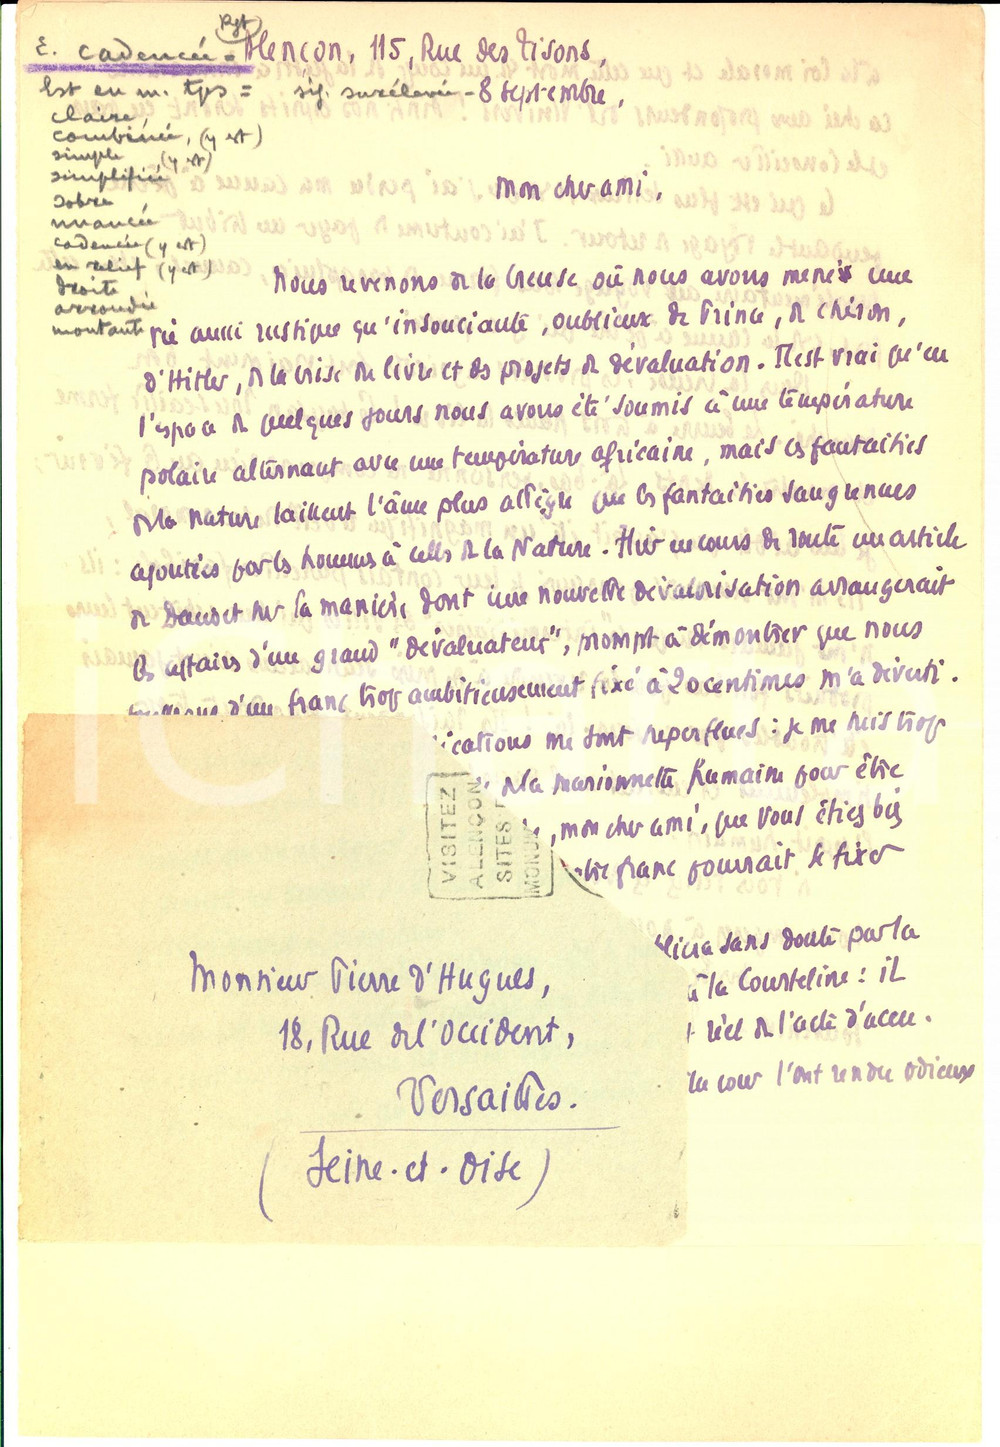 Rgt
E. cadencée = Alençon, 115, Rue des Tisons,
Est en m. tps = sig. surélevée - 8 septembre,
claire,
combinée, (y est)
simple (y est)
simplifiée
sobre
nuancée
cadencée (y est)
en relief (y est)
droite
arrondie
montante
Mon cher ami,
Nous revenons de la Creuse où nous avons menés une
vie aussi rustique qu'insouciante, oublieux de Prince, de Chéron,
d'Hitler, de la crise du livre et des projets de dévaluation. Il est vrai qu'en
l'espace de quelques jours nous avons été soumis à une température
polaire alternant avec une température africaine, mais ces fantaisies
de la nature laissent l'âme plus allègre que les fantaisies saugrenues
ajoutées par les hommes à celles de la Nature. Hier en cours de route un article
de Daudet sur la manière dont une nouvelle dévalorisation arrangerait
les affaires d'un grand "dévaluateur", prompt à démontrer que nous
d'un franc trop ambitieusement fixé à 20 centimes m'a diverti.
ications me sont superflues : je me suis trop
de la marionnette humaine pour être
, mon cher ami, que vous étiez bis
tre franc pourrait se fixer
bliera sans doute par la
à la Courteline : il
t réel de l'acte d'accu.
la cour l'ont rendu odieux
VISITEZ
ALENÇON
SITES
MONUM
Monsieur Pierre d'Hugues,
18, Rue de l'Occident,
Versailles.
(Seine-et-Oise)